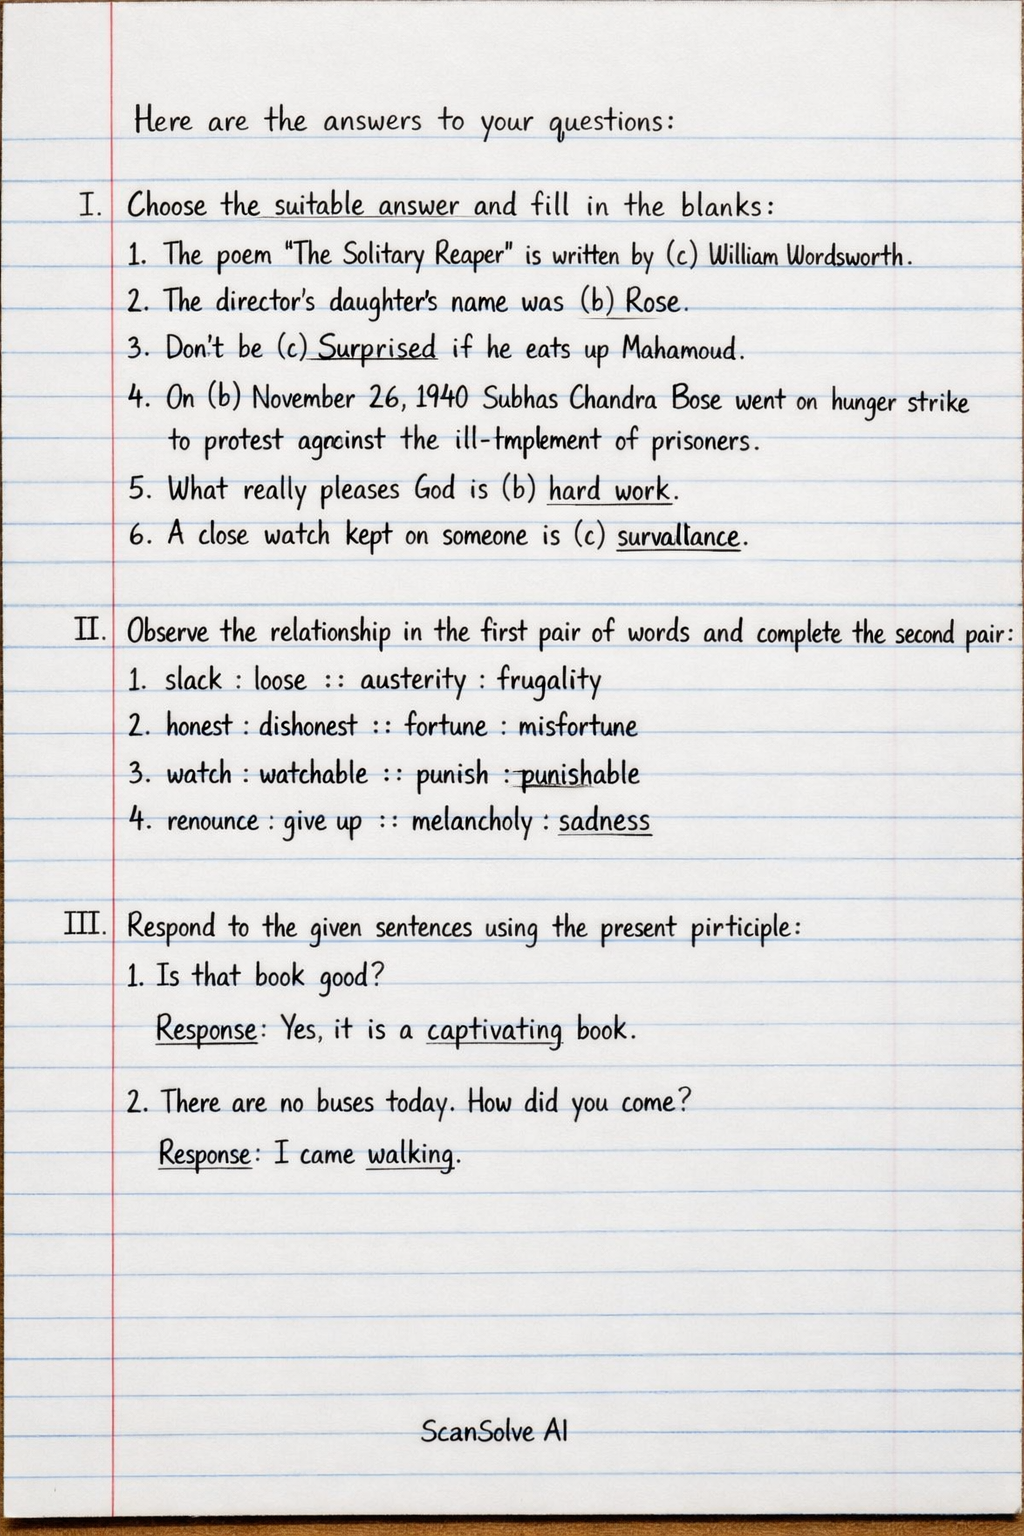 Here are the answers to your questions:
I. Choose the suitable answer and fill in the blanks:
1. The poem "The Solitary Reaper" is written by (c) William Wordsworth.
2. The director's daughter's name was (b) Rose.
3. Don't be (c) Surprised if he eats up Mahamoud.
4. On (b) November 26, 1940 Subhas Chandra Bose went on hunger strike
to protest against the ill-tmplement of prisoners.
5. What really pleases God is (b) hard work.
6. A close watch kept on someone is (c) survallance.
II. Observe the relationship in the first pair of words and complete the second pair:
1. slack : loose :: austerity : frugality
2. honest : dishonest :: fortune : misfortune
3. watch : watchable :: punish : punishable
4. renounce : give up :: melancholy : sadness
III. Respond to the given sentences using the present pirticiple:
1. Is that book good?
Response: Yes, it is a captivating book.
2. There are no buses today. How did you come?
Response: I came walking.
ScanSolve AI